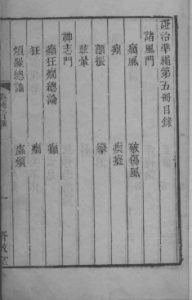 證治準繩第五冊目錄
諸風門
癘風 破傷風
顫振 攣
眩暈
神志門
癲狂癇總論 癲
狂 癇
煩躁總論 虛煩